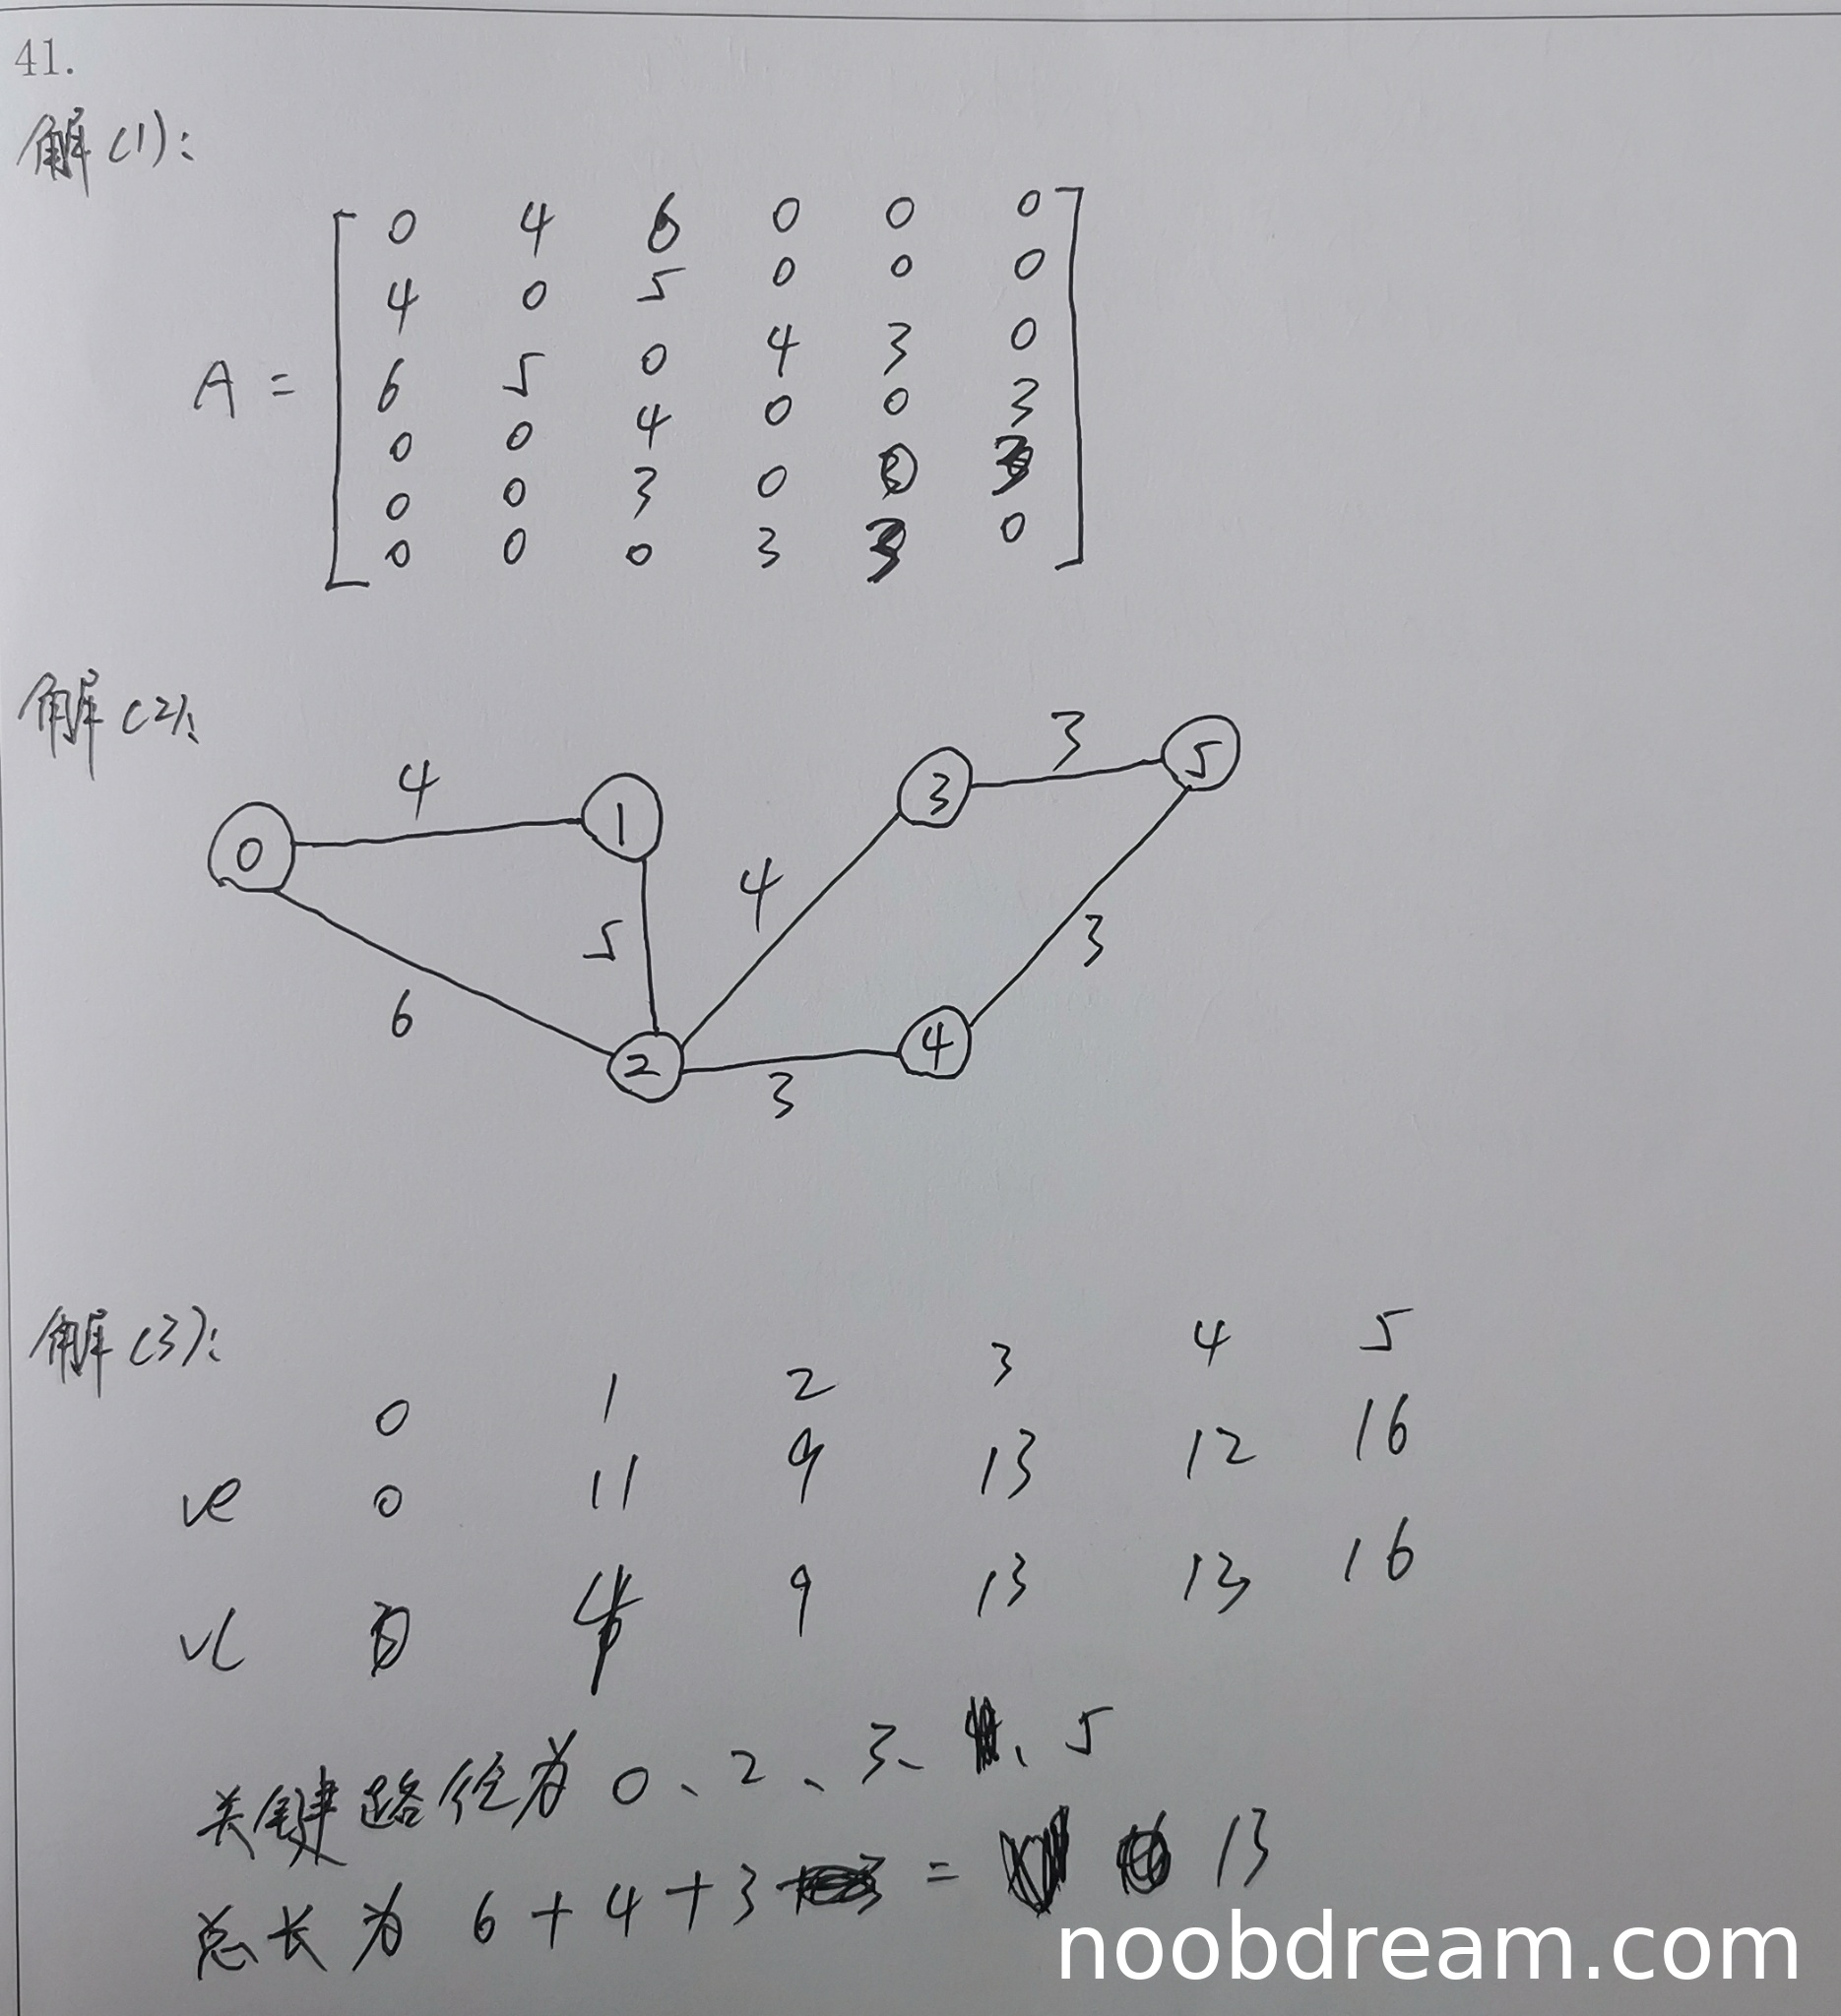 41.
解(1):
0 4 6 0 0 0
4 0 5 0 0 0
A = 6 5 0 4 3 0
0 0 4 0 0 3
0 0 3 0 0 3
0 0 0 3 3 0
解(2):
0 4 1 3 3 5
6 5 4 3
2 3 4
解(3):
0 1 2 3 4 5
ve 0 11 9 13 12 16
vl 0 4 9 13 13 16
关键路径为 0、2、3、、5
总长为 6+4+3 = 13
noobdream.com